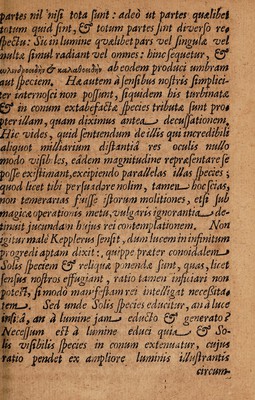 partes nil nisi tota sunt: adeò ut partes quælibet
totum quid sint, & totum partes sint diverso re-
spectu: Sic in lumine quælibet pars vel singulæ vel
multæ simul radiant vel omnes: hinc sequetur, &
& καλαθοειδῆ ab eodem produci umbram
aut speciem. Hæ autem à sensibus nostris simplici-
ter internosci non possunt, siquidem his turbinatæ
& in conum extabefactæ species tributæ sunt pro-
pter illam, quam diximus antea decussationem.
Hic vides, quid sentiendum de illis qui incredibili
aliquot milliarium distantiâ res oculis nullo
modo visibiles, eâdem magnitudine repræsentare se
posse existimant, excipiendo parallelas illas species;
quod licet tibi persuadere nolim, tamen hoc scias,
non temerarias fuisse istorum molitiones, etsi sub
magicæ operationis metu, vulgaris ignorantia de-
tinuit jucundam hujus rei contemplationem. Non
igitur malè Kepplerus sensit, dum lucem in infinitum
progredi aptam dixit: quippe præter conoidalem
Solis speciem & reliquæ ponendæ sunt, quas, licet
sensus nostros effugiant, ratio tamen inficiari non
potest, si modo manifestam rei intelligat necessita-
tem. Sed unde Solis species educitur, an à luce
insitâ, an à lumine jam educto & generato?
Necessum est à lumine educi quia & So-
lis visibilis species in conum extenuatur, cujus
ratio pendet ex ampliore luminis illustrantis
circum-